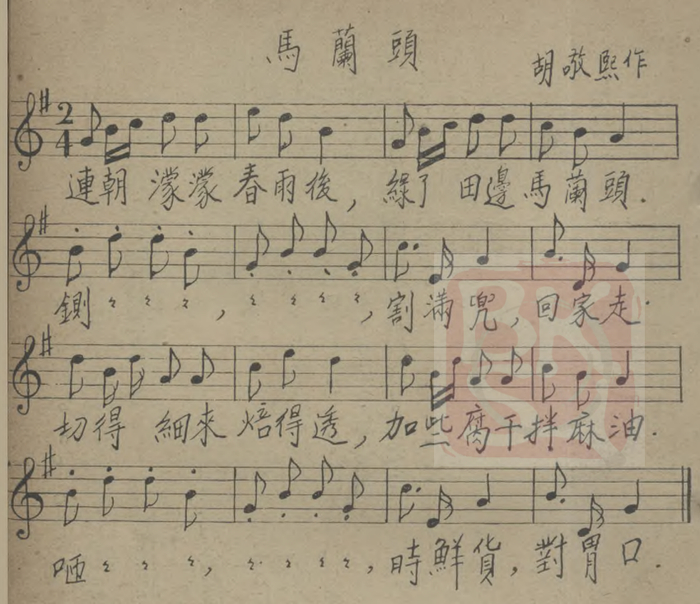 馬蘭頭
胡敬熙作
2
4
連朝 濛濛 春雨後，綠了 田邊馬蘭頭．
鍘〻〻〻，〻〻〻〻，割滿兜，回家走．
切得 細來 焙得透，加些腐干拌麻油．
哂〻〻〻，〻〻〻〻，時鮮貨，對胃口．